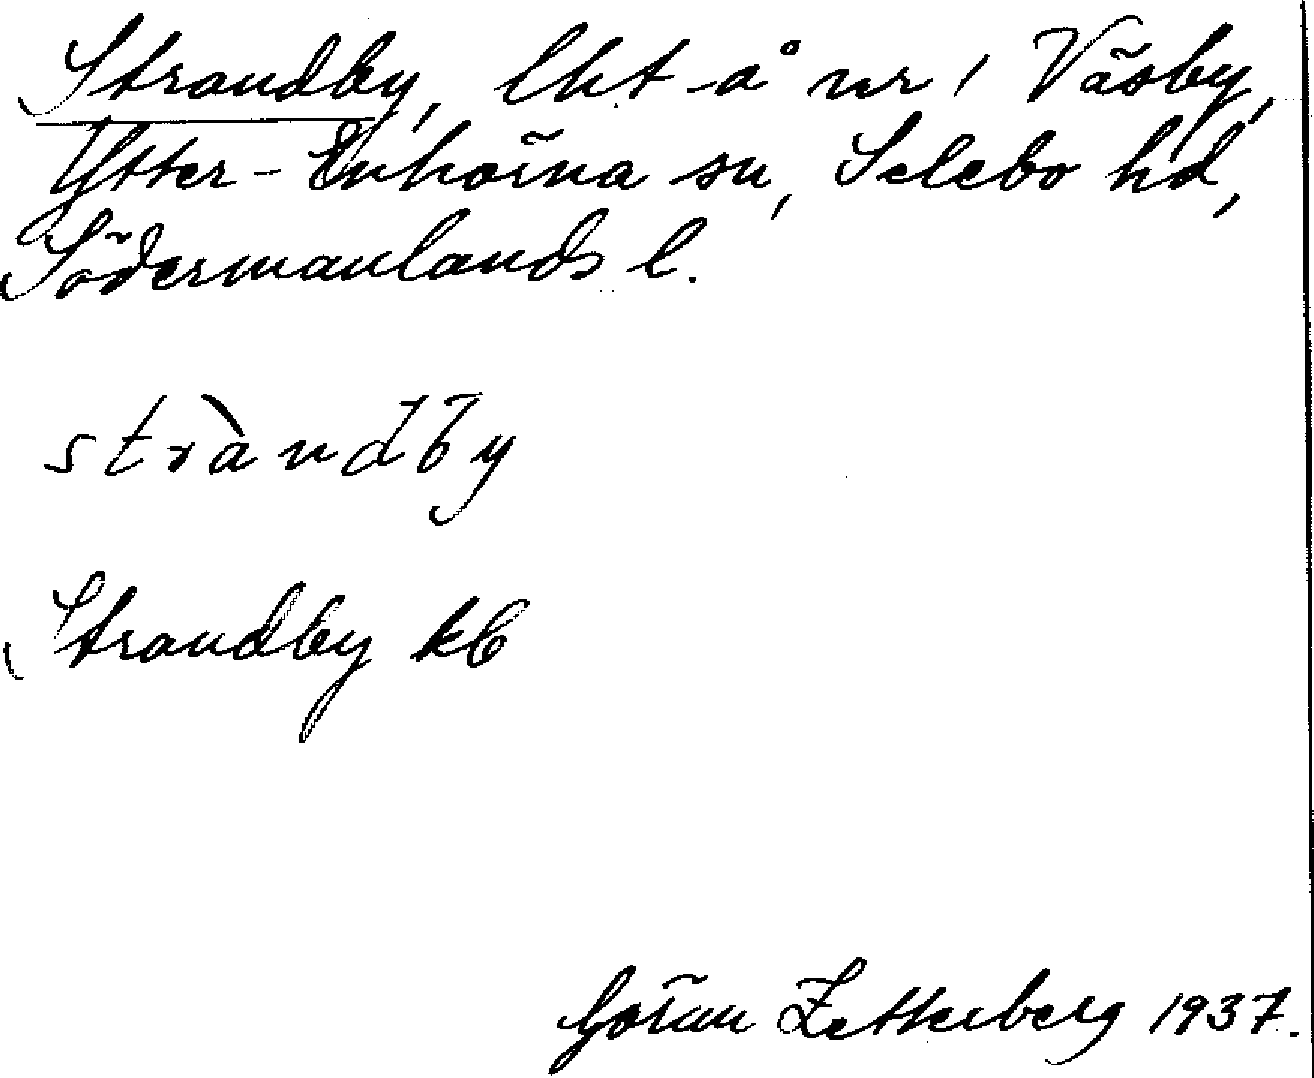 Strandby, lht å nr 1 Väsby,
Ytter-Enhörna sn, Selebo hd,
Södermanlands l.
stràndby
Strandby kb
Göran Zetterberg 1937.